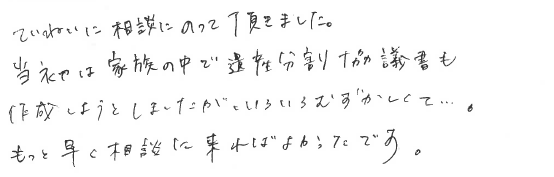 ていねいに相談にのって頂きました。
当初は家族の中で遺産分割協議書も
作成しようとしましたがいろいろむずかしくて…。
もっと早く相談に来ればよかったです。